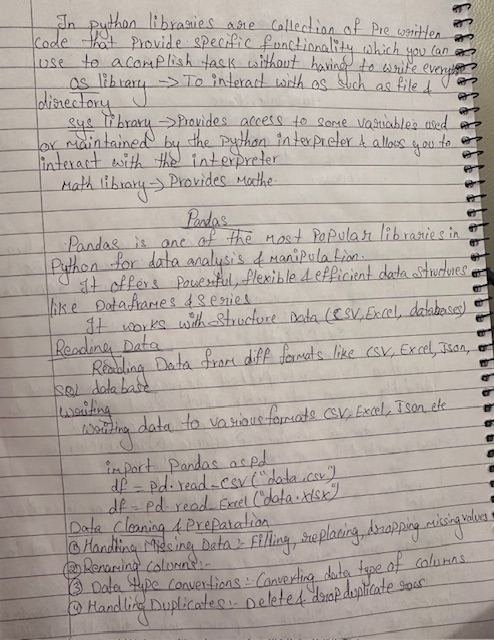 In python libraries are collection of Pre written
code that Provide specific functionality which you can
use to acomplish task without having to write every
os library -> To interact with os such as file &
directory
sys library -> Provides access to some variables used
or maintained by the Python interpreter & allows you to
interact with the interpreter
Math library -> Provides Mathe
Pandas
Pandas is one of the most Popular libraries in
Python for data analysis & Manipulation.
It offers Powerful, flexible & efficient data structures
like Dataframes & Series
It works with Structure Data (CSV, Excel, databases)
Reading Data
Reading Data from diff formats like CSV, Excel, Json,
SQL database
Writing
Writing data to various formats CSV, Excel, Json etc
import Pandas as pd
df = Pd.read-CSV ("data.csv")
df = Pd.read Excel ("data.xlsx")
Data Cleaning & Preparation
① Handling Missing Data:- Filling, replacing, dropping missing values
② Renaming columns:-
③ Data type convertions:- Converting data type of columns
④ Handling Duplicates:- Delete & drop duplicate rows